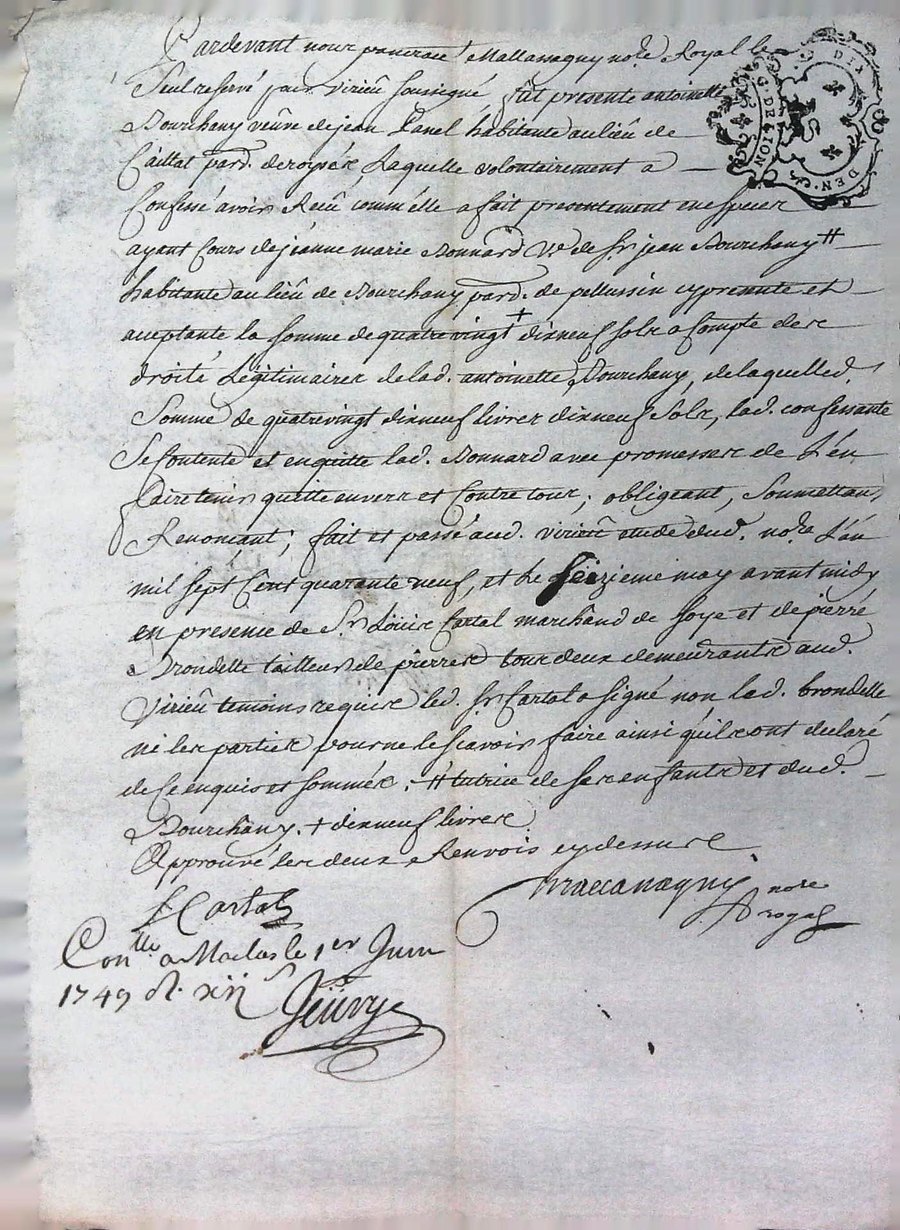 Pardevant nous pancrace Mallassagny no.re Royal le
Seul reservé pour Virieu soussigné fut presente antoinette
Bourchany veuve de jean Panel habitante au lieu de
Caillat par.d. de roysér Laquelle volontairement a
Confessé avoir Receu comm'elle a fait presentement en especes
ayant Cours de jeanne marie Bonnard V.e de S.r jean Bourchany #
habitante au lieu de Bourchany par.d. de pellussin cy presente et
aceptante la Somme de quatrevingt + dixneuf Sols a Compte des
droits Légitimaires de lad. antoinette Bourchany, de laquelle d.
Somme de quatrevingt dixneuf livres dixneuf Sols, lad. confessante
Se Contente et en quitte lad. Bonnard avec promesses de L'en
faire tenir quitte envers et Contre tous; obligeant, Soumettant,
Renonçant; fait et passé aud. Virieu etude dud. no.re L'an
mil sept Cent quarante neuf, et le Seizieme may avant midy
en presence de S.r Louis Cartal marchand de soye et de pierre
Brondelle tailleur de pierres tous deux demeurants aud.
Virieu temoins requis led. S.r Cartal a signé non led. brondelle
ni les parties pour ne le scavoir faire ainsi qu'ils ont declaré
de Ce enquis et sommés. # tutrice de ses enfants et dud.
Bourchany. + dixneuf livres
Approuvé les deux Renvois cy dessus
L Cartal
no.re
royal
Con.llé a Maclas le 1er Juin
1749 R. xii s
DIX
DEN.
G. DE LYON